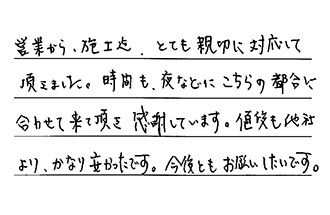 営業から、施工迄、とても親切に対応して
頂きました。時間も、夜などにこちらの都合に
合わせて来て頂き感謝しています。値段も他社
より、かなり安かったです。今後ともお願いしたいです。